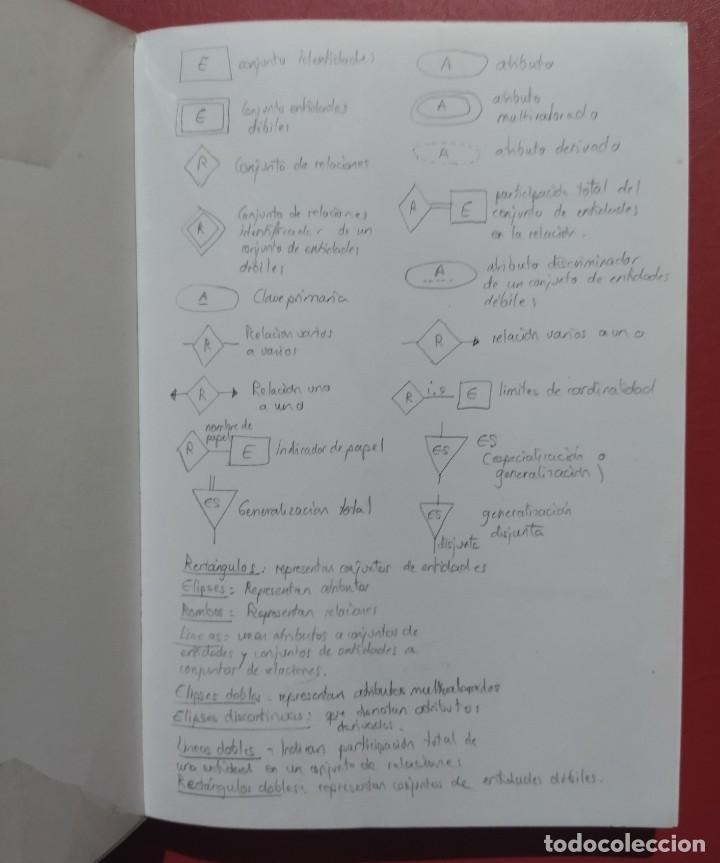 E conjunto identidades
E Conjunto entidades
débiles
R Conjunto de relaciones
R Conjunto de relaciones
identificador de un
conjunto de entidades
débiles
A Clave primaria
R Relacion varios
a varios
R Relación uno
a uno
nombre de
papel
R E Indicador de papel
ES Generalización total
A atributo
A atributo
multivalorado
A atributo derivado
R E participación total del
conjunto de entidades
en la relación.
A atributo discriminador
de un conjunto de entidades
débiles
R relación varios a uno
R E limites de cardinalidad
ES ES
(especialización o
generalización)
ES generalización
disjunta
disjunta
Rectángulos: representan conjuntos de entidades
Elipses: Representan atributos
Rombos: Representan relaciones
Lineas: unen atributos a conjuntos de
entidades y conjuntos de entidades a
conjuntos de relaciones.
Elipses dobles. representan atributos multivalorados
Elipses discontinuas: que denotan atributos
derivados.
Lineas dobles - Indican participación total de
una entidad en un conjunto de relaciones
Rectángulos dobles: representan conjuntos de entidades débiles.
todocoleccion